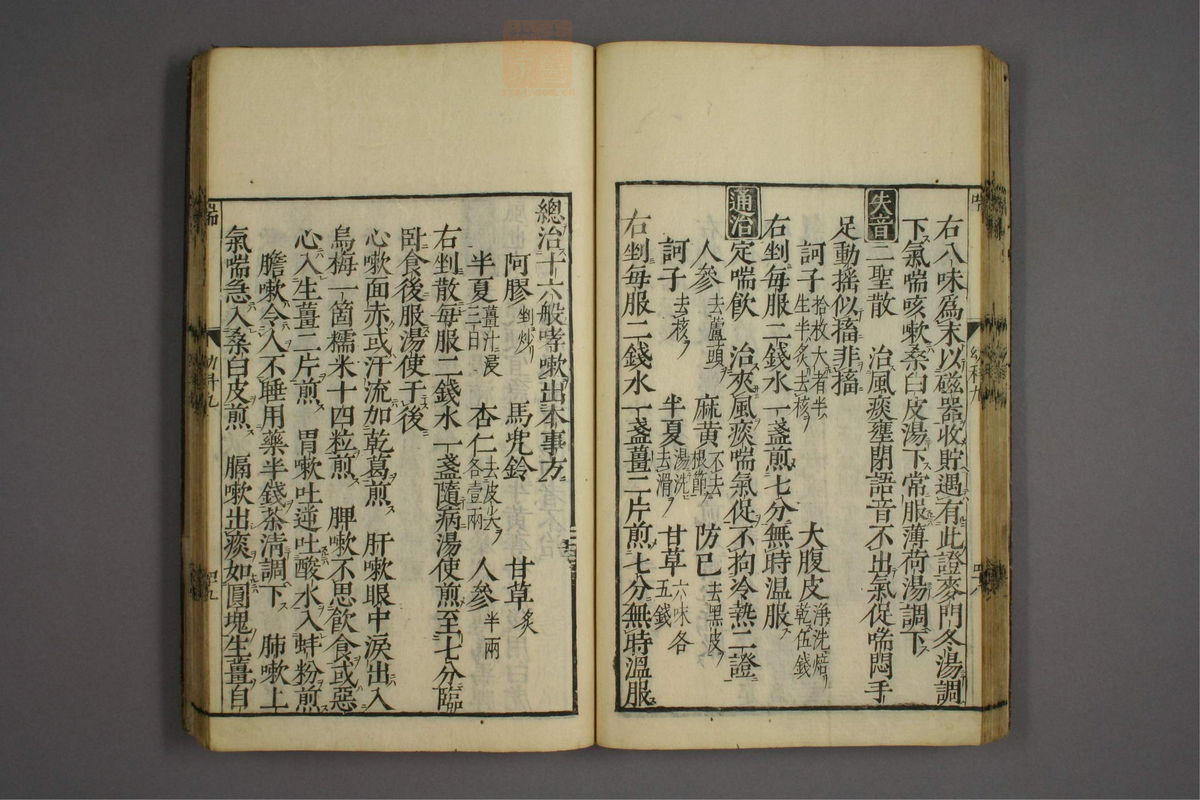 右八味爲末以磁器收貯遇有此證麥門冬湯調
下氣喘咳嗽桑白皮湯下常服薄荷湯調下
失音 二聖散 治風痰壅閉語音不出氣促喘悶手
足動搖似搐非搐
訶子 拾枚大者半生半炙去核 大腹皮 淨洗焙乾伍錢
右剉每服二錢水一盞煎七分無時溫服
通治 定喘飲 治夾風痰喘氣促不拘冷熱二證
人參 去蘆頭 麻黃 不去根節 防己 去黑皮
訶子 去核 半夏 湯洗去滑 甘草 六味各五錢
右剉每服二錢水一盞薑二片煎七分無時溫服
總治十六般哮嗽出本事方
阿膠 剉炒 馬兜鈴 甘草 炙
半夏 薑汁浸三日 杏仁 去皮尖各壹兩 人參 半兩
右剉散每服二錢水一盞隨病湯使煎至七分臨
臥食後服湯使于後
心嗽面赤或汗流加乾葛煎 肝嗽眼中淚出入
烏梅一箇糯米十四粒煎 脾嗽不思飲食或惡
心入生薑二片煎 胃嗽吐逆吐酸水入蚌粉煎
膽嗽令人不睡用藥半錢茶清調下 肺嗽上
氣喘急入桑白皮煎 膈嗽出痰如圓塊生薑自